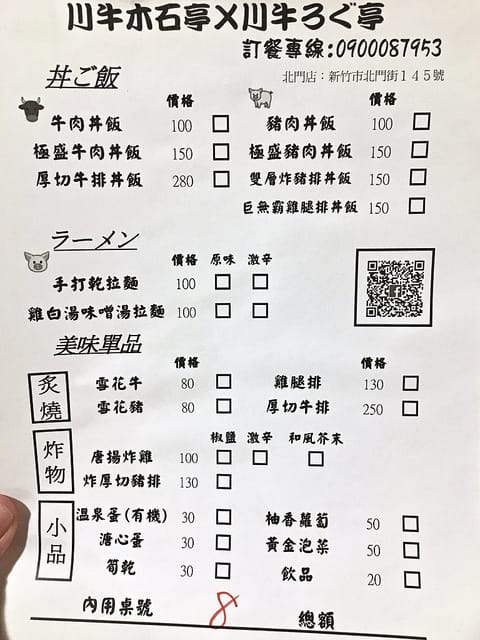 川牛木石亭X川牛ろぐ亭
訂餐專線:0900087953
北門店：新竹市北門街１４５號
丼ご飯
價格 價格
牛肉丼飯 100 □ 豬肉丼飯 100 □
極盛牛肉丼飯 150 □ 極盛豬肉丼飯 150 □
厚切牛排丼飯 280 □ 雙層炸豬排丼飯 150 □
巨無霸雞腿排丼飯 150 □
ラーメン
價格 原味 激辛
手打乾拉麵 100 □ □
雞白湯味噌湯拉麵 100 □ □
美味單品
價格 價格
炙燒
雪花牛 80 □ 雞腿排 130 □
雪花豬 80 □ 厚切牛排 250 □
炸物
椒鹽 激辛 和風芥末
唐揚炸雞 100 □ □ □
炸厚切豬排 130 □
小品
温泉蛋(有機) 30 □ 柚香蘿蔔 50 □
溏心蛋 30 □ 黃金泡菜 50 □
筍乾 30 □ 飲品 20 □
內用桌號 8 總額